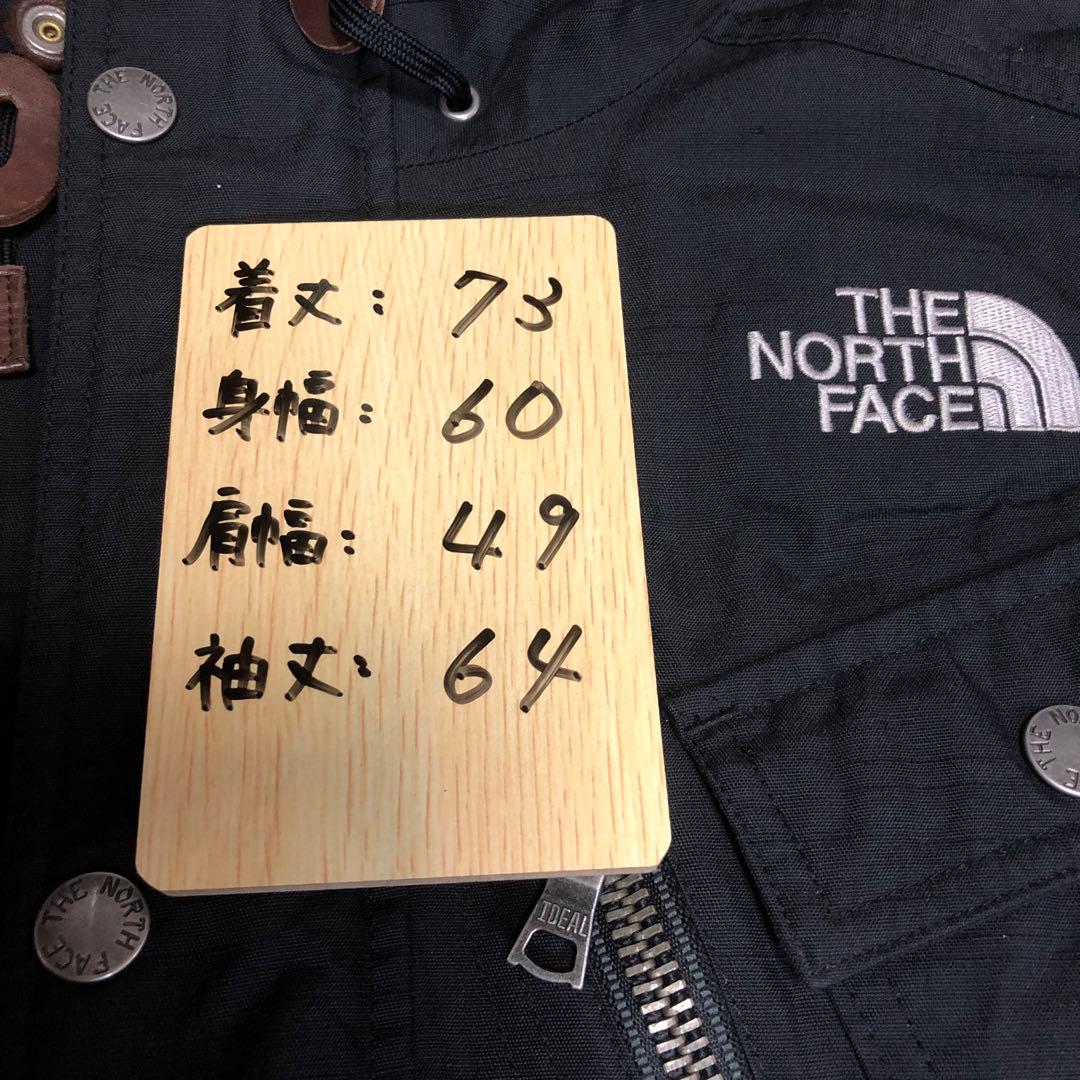 THE NORTH FACE
着丈: 73
身幅: 60
肩幅: 49
袖丈: 64
THE
NORTH
FACE
THE NO
F
THE NORTH FACE
IDEAL